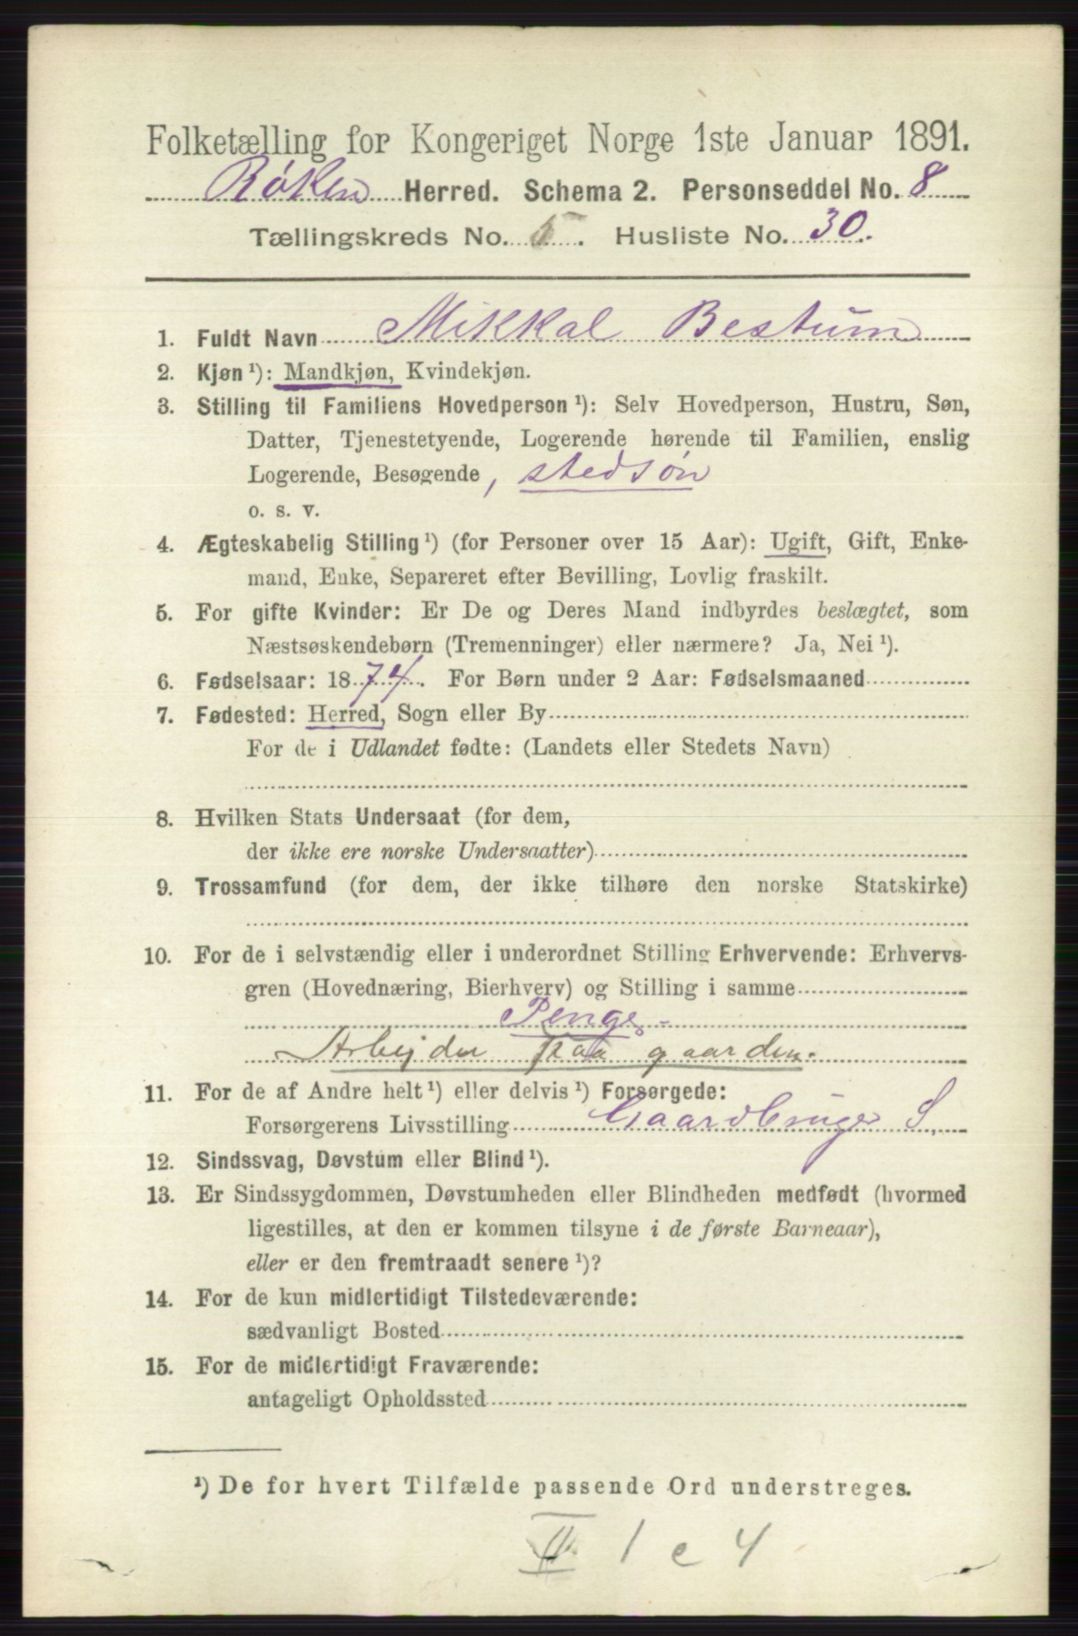 Folketælling for Kongeriget Norge 1ste Januar 1891.
Røken Herred. Schema 2. Personseddel No. 8
Tællingskreds No. 5. Husliste No. 30.
1. Fuldt Navn Mikkal Bestum
2. Kjøn ¹): Mandkjøn, Kvindekjøn.
3. Stilling til Familiens Hovedperson ¹): Selv Hovedperson, Hustru, Søn,
Datter, Tjenestetyende, Logerende hørende til Familien, enslig
Logerende, Besøgende, stedsøn
o. s. v.
4. Ægteskabelig Stilling ¹) (for Personer over 15 Aar): Ugift, Gift, Enke-
mand, Enke, Separeret efter Bevilling, Lovlig fraskilt.
5. For gifte Kvinder: Er De og Deres Mand indbyrdes beslægtet, som
Næstsøskendebørn (Tremenninger) eller nærmere? Ja, Nei ¹).
6. Fødselsaar: 1874. For Børn under 2 Aar: Fødselsmaaned
7. Fødested: Herred, Sogn eller By
For de i Udlandet fødte: (Landets eller Stedets Navn)
8. Hvilken Stats Undersaat (for dem,
der ikke ere norske Undersaatter)
9. Trossamfund (for dem, der ikke tilhøre den norske Statskirke)
10. For de i selvstændig eller i underordnet Stilling Erhvervende: Erhvervs-
gren (Hovednæring, Bierhverv) og Stilling i samme
Penge-
Arbejder paa gaarden.
11. For de af Andre helt ¹) eller delvis ¹) Forsørgede:
Forsørgerens Livsstilling Gaardbruger S.
12. Sindssvag, Døvstum eller Blind ¹).
13. Er Sindssygdommen, Døvstumheden eller Blindheden medfødt (hvormed
ligestilles, at den er kommen tilsyne i de første Barneaar),
eller er den fremtraadt senere ¹)?
14. For de kun midlertidigt Tilstedeværende:
sædvanligt Bosted
15. For de midlertidigt Fraværende:
antageligt Opholdssted
¹) De for hvert Tilfælde passende Ord understreges.
II 1 c 4